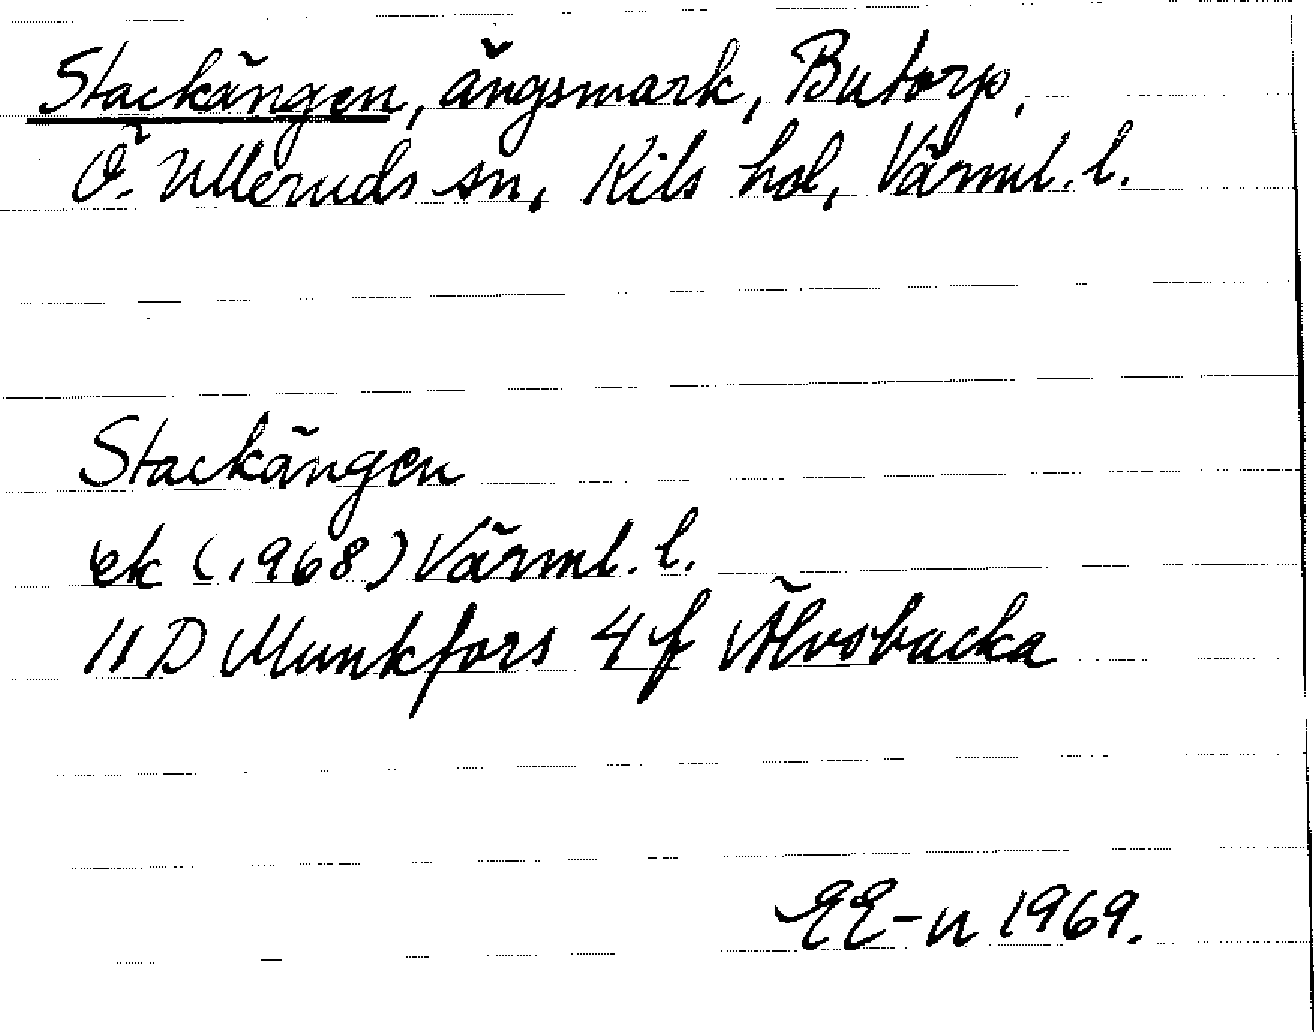 Stackängen, ängsmark, Butorp.
Ö. Ulleruds sn, Kils hd, Värml. l.
Stackängen
ek (1968) Värml. l.
11 D Munkfors 4 f Älvsbacka
EE-n 1969.